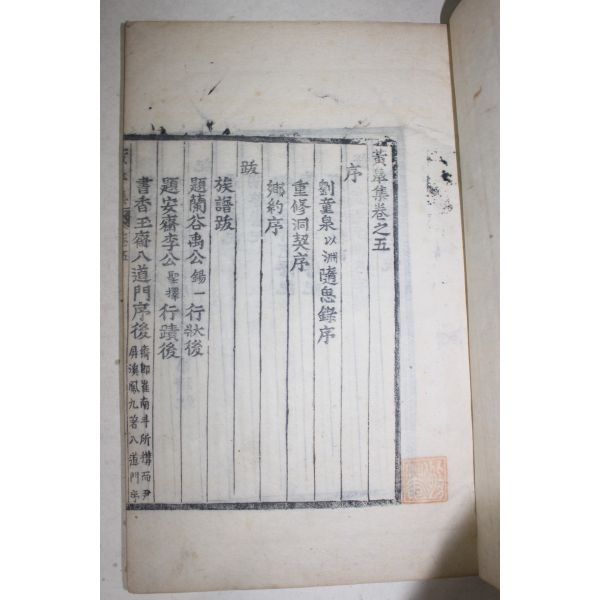 黃皐集卷之五
序
劉童泉以淵隨思錄序
重修洞契序
鄕約序
跋
族譜跋
題蘭谷禹公錫一行狀後
題安齋李公聖擇行蹟後
書香玉齋八道門序後齋卽崔南斗所構而尹屛溪鳳九著八道門序